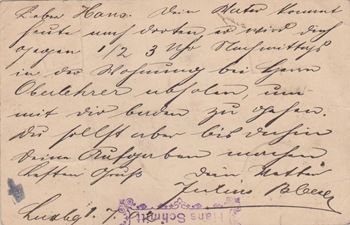 Lieber Hans. Dein Vater kommt
heute nach dorten, er wird dich
gegen 1/2 3 Uhr Nachmittags
in der Wohnung bei Herrn
Oberlehrer abholen, um
mit dir baden zu gehen.
Du sollst aber bis dahin
Deine Aufgaben machen
Besten Gruß Dein Vetter
Julius
Ludbg 1. 7.
Hans Schmitt